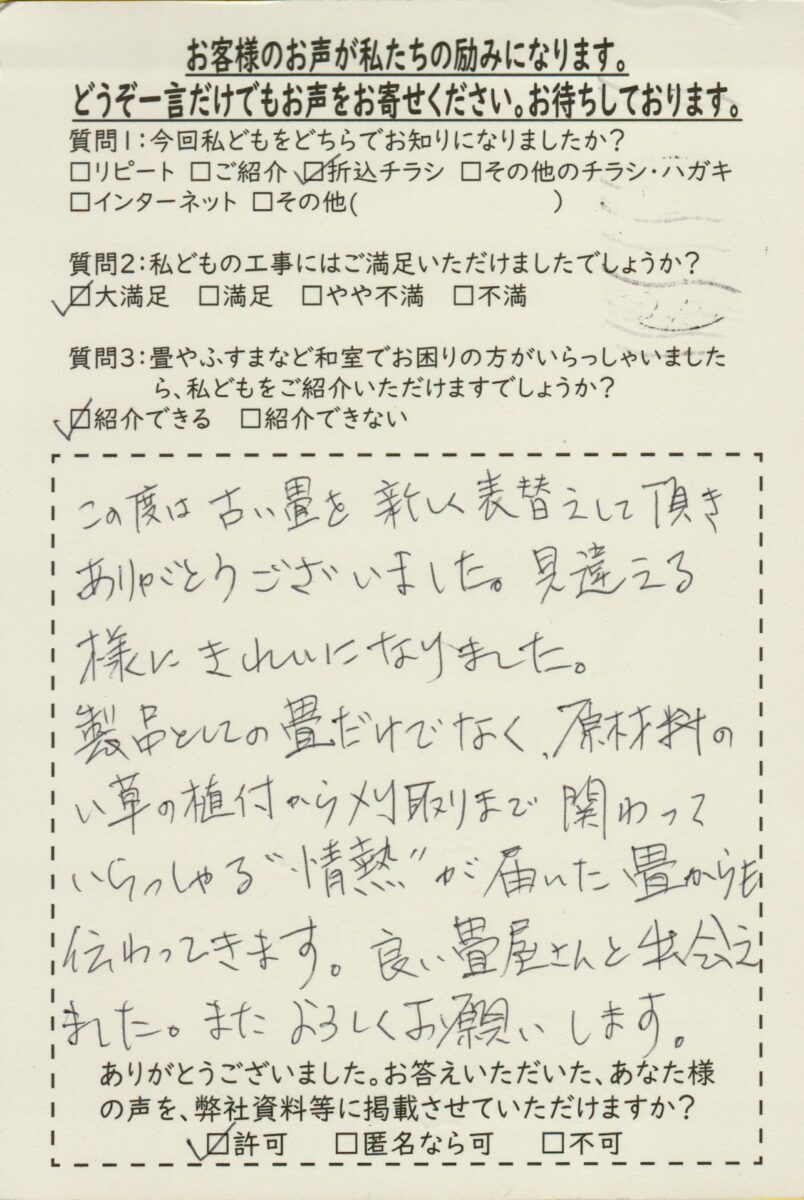 お客様のお声が私たちの励みになります。
どうぞ一言だけでもお声をお寄せください。お待ちしております。
質問1:今回私どもをどちらでお知りになりましたか?
□リピート □ご紹介 ☑折込チラシ □その他のチラシ・ハガキ
□インターネット □その他( )
質問2:私どもの工事にはご満足いただけましたでしょうか?
☑大満足 □満足 □やや不満 □不満
質問3:畳やふすまなど和室でお困りの方がいらっしゃいました
ら、私どもをご紹介いただけますでしょうか?
☑紹介できる □紹介できない
この度は古い畳を新しく表替えして頂き
ありがとうございました。見違える
様にきれいになりました。
製品としての畳だけでなく、原材料の
い草の植付から刈取りまで関わって
いらっしゃる“情熱”が届いた畳からも
伝わってきます。良い畳屋さんと出会え
ました。またよろしくお願いします。
ありがとうございました。お答えいただいた、あなた様
の声を、弊社資料等に掲載させていただけますか?
☑許可 □匿名なら可 □不可